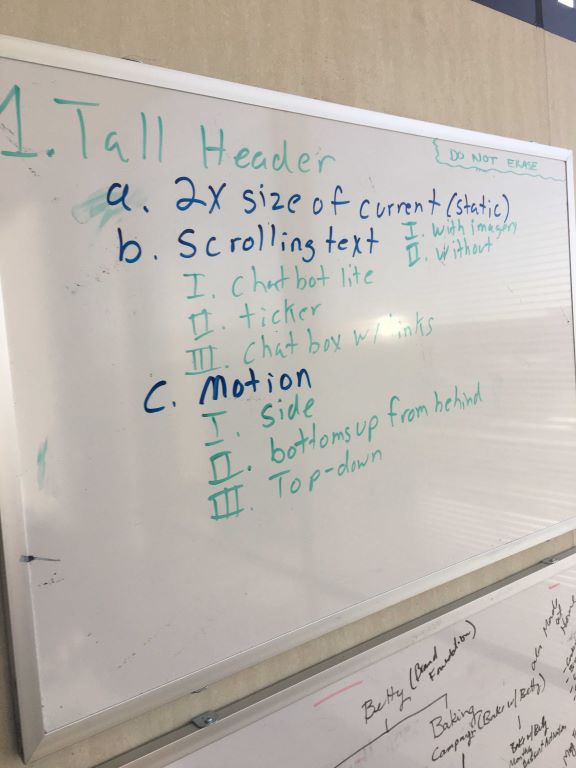 1. Tall Header
DO NOT ERASE
a. 2X size of current (static)
I. with imagery
II. without
b. Scrolling text
I. Chat bot lite
II. ticker
III. Chat box w/ links
C. Motion
I. Side
II. bottoms up from behind
III. Top-down
Betty (Brand Foundation)
Baking
Campaign (Bake w/ Betty)
Bake w/ Betty